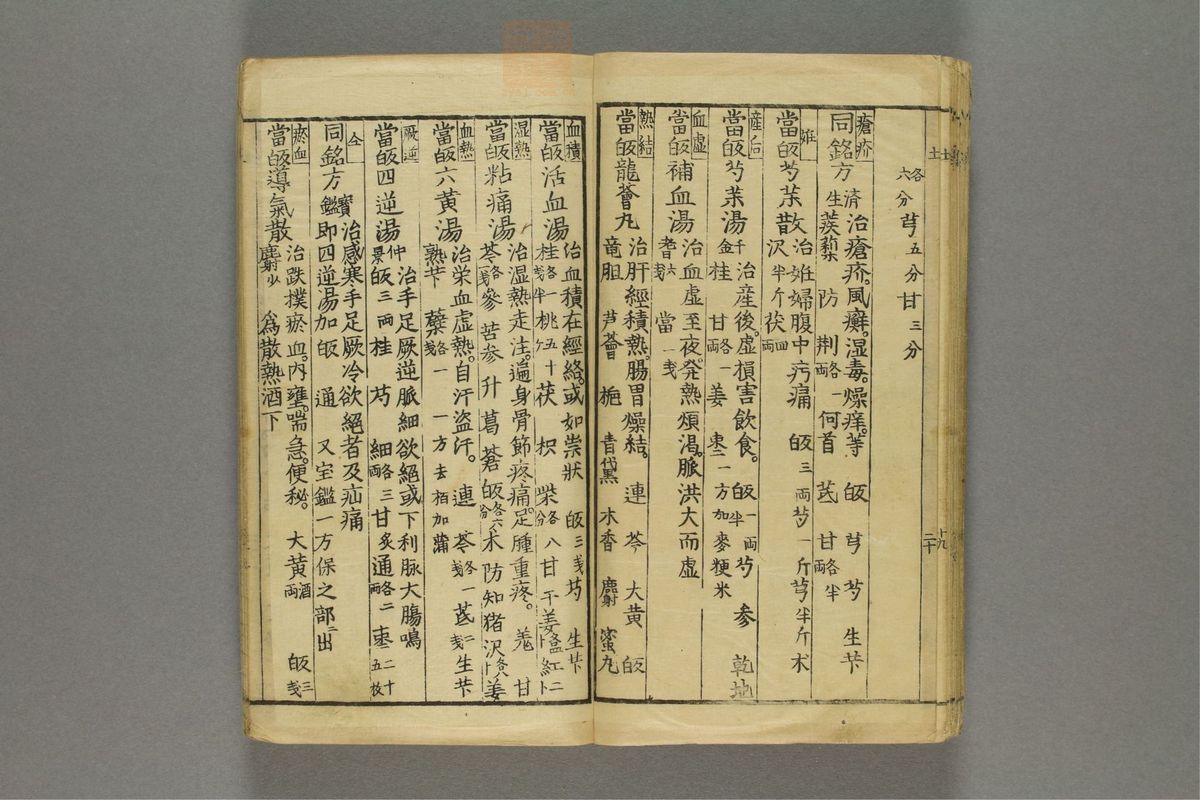 各
六分芎五分甘三分
瘡疥
同銘方 濟 治瘡疥。風癬。湿毒。燥痒。等 皈 芎 芍 生芐
生 蒺蔾 防 荆各一両 何首 芪 甘各半両
妊
當皈芍薬散 治妊婦腹中㽲痛 皈三両 芍一斤 芎半斤 朮
沢半斤 茯四両
産后
當皈芍薬湯 千金 治産後。虚損害飲食。皈一両半 芍 参 乾地
桂 甘各一両 姜 棗二 一方加麥粳米
血虚
當皈補血湯 治血虚至夜。発熱煩渇。脈洪大而虚
耆六戔 當一戔
熱結
當皈龍薈丸 治肝經積熱。腸胃燥結。連 芩 大黄 皈
竜胆 芦薈 梔 青黛 木香 麝 蜜丸
血積
當皈活血湯 治血積在經絡。或如祟狀 皈三戔 芍 生芐
桂各一戔半 桃五十ケ 茯 枳 柴各八分 甘 干姜 紅二
湿熱
當皈粘痛湯 治湿熱走注。遍身骨節疼痛。足腫重疼。羗 甘
芩各一戔 參 苦参 升 葛 蒼 皈各六分 朮 防 知 猪 沢 姜
血熱
當皈六黄湯 治栄血虚熱。自汗盗汗。連 芩各一戔 芪二戔 生芐
熟芐 蘗各一戔 一方去栢加蒲
厥逆
當皈四逆湯 仲景 治手足厥逆脈細欲絕或下利脉大腸鳴
皈三両 桂 芍 細各三両 甘炙 通各二両 棗二十五枚
仝
同銘方 寳鑑 治感寒手足厥冷欲絕者及疝痛
即四逆湯加皈通 又宝鑑一方保之部ニ出
瘀血
當皈導氣散 治跌撲瘀血。內壅。喘急。便秘。大黄酒両 皈三戔
麝少 為散熱酒下
土土
十九
二十